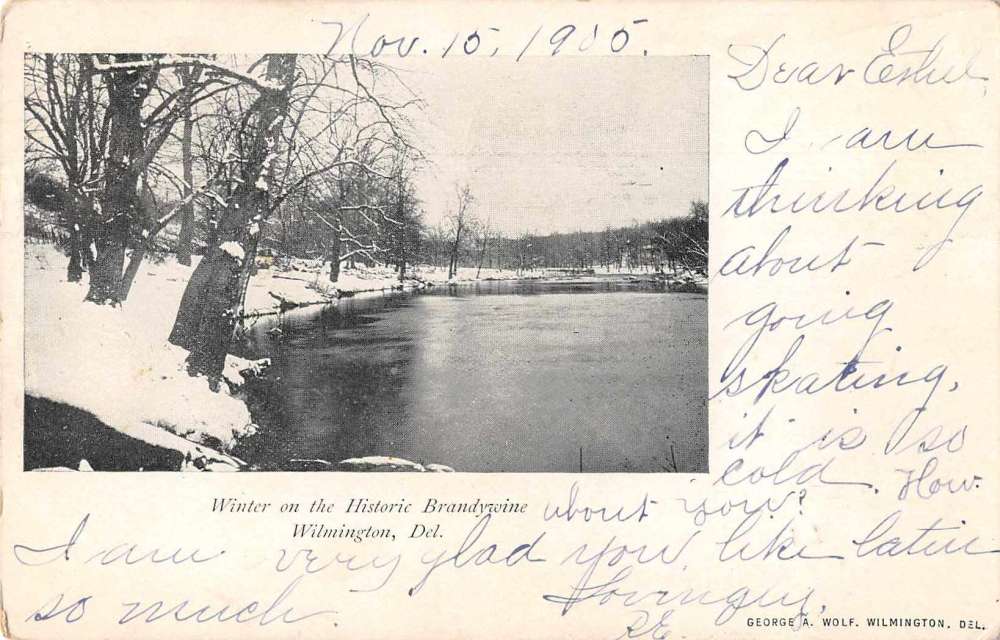 Nov. 15, 1905.
Dear Ethel,
I am
thinking
about
going
skating,
it is so
cold. How
about you?
Winter on the Historic Brandywine
Wilmington, Del.
I am very glad you like latin
so much.
Lovingly,
GEORGE A. WOLF. WILMINGTON. DEL.